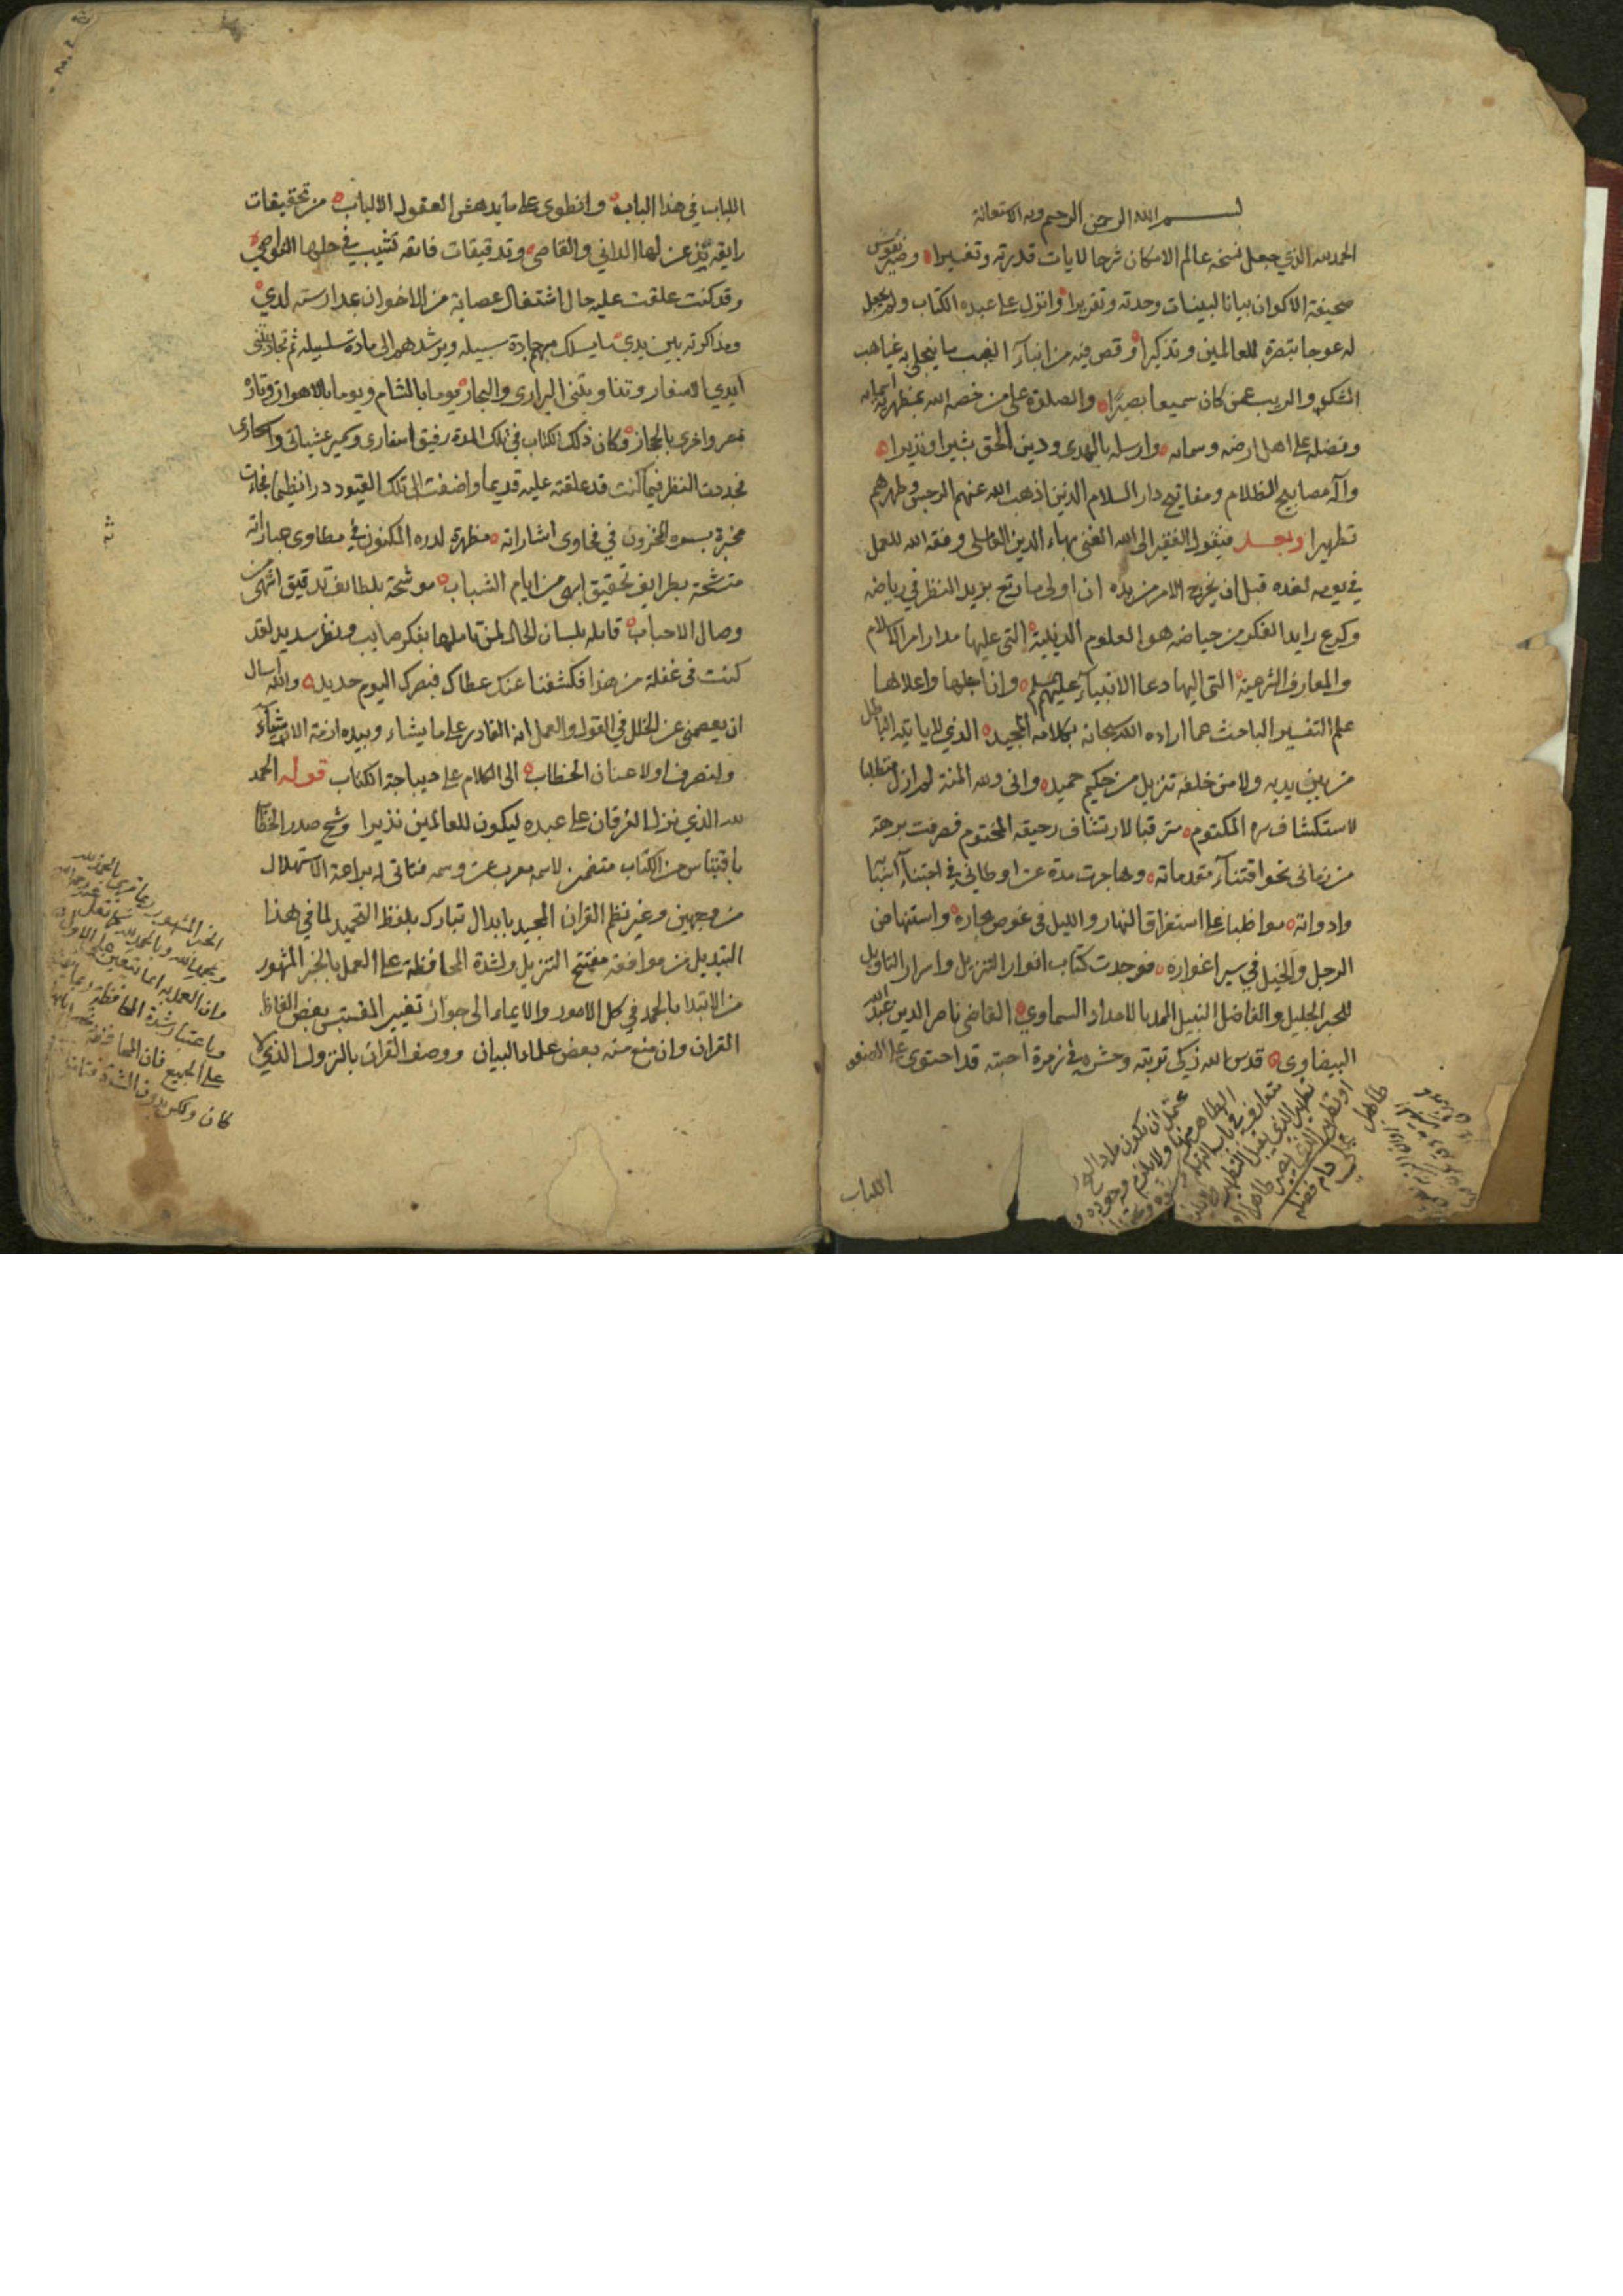 بسم الله الرحمن الرحيم وبه الاستعانة
الحمد لله الذي جعل نسخة عالم الامكان شرحا لايات قدرته وتفسيرا وصير نقوش
صحيفة الاكوان بيانا لبينات وحدته وتقريرا وانزل على عبده الكتاب ولم يجعل
له عوجا تبصرة للعالمين وتذكيرا وقص فيه من انباء الغيب ما ينجلي به غياهب
الشكوك والريب عمن كان سميعا بصيرا والصلوة على من خصه الله
وفضله على اهل ارضه وسمائه وارسله بالهدى ودين الحق بشيرا ونذيرا
وآله مصابيح الظلام ومفاتيح دار السلام الذين اذهب الله عنهم الرجس وطهرهم
تطهيرا وبعد فيقول الفقير الى الله الغني بهاء الدين العاملي وفقه الله للعمل
في يومه لغده قبل ان يخرج الامر من يده ان اولى ما رتع بريد النظر في رياضه
وكرع رايد الفكر من حياضه هو العلوم الدينية التي عليها مدار امر الاسلام
والمعارف الشرعية التي اليها دعا الانبياء عليهم السلام وان اجلها واعلاها
علم التفسير الباحث عما اراده الله سبحانه بكلامه المجيد الذي لا ياتيه الباطل
من بين يديه ولا من خلفه تنزيل من حكيم حميد واني ولله المنة لم ازل متطلبا
لاستكشاف سره المكتوم مترقبا لارتشاف رحيقه المختوم فصرفت برهة
من زماني نحو اقتناء مقدماته وهاجرت مدة عن اوطاني في اجتناء اسبابه
وادواته مواظبا على استغراق النهار والليل في غوص بحاره واستنهاض
الرجل والخيل في سبر اغواره فوجدت كتاب انوار التنزيل واسرار التاويل
للحبر الجليل والفاضل النبيل الممد بالامداد السماوي القاضي ناصر الدين عبد الله
البيضاوي قدس الله زكي تربته وحشره في زمرة احبته قد احتوى على
اللباب
اللباب في هذا الباب وانطوى على ما يدهش العقول الالباب من تحقيقات
رايقة لها الداني والقاصي وتدقيقات فايقة تشيب في حلها النواصي
وقد كنت علقت عليه حال اشتغال عصابة من الاخوان بمدارسته لدي
ومذاكرته بين يدي ما يسلك بهم جادة سبيله ويرشدهم الى مادة سلسبيله ثم تجاذبتني
ايدي الاسفار وتناوبتني البراري والبحار يوما بالشام ويوما بالاهواز وتارة
بمصر واخرى بالحجاز فكان ذلك الكتاب في تلك المدة رفيق اسفاري وسمير عشياتي واسحاري
فجددت النظر فيما كنت قد علقته عليه قديما واضفت الى تلك القيود درا نظيما فجاءت
مخبرة بسره المخزون في فحاوى اشاراته مظهرة لدره المكنون في مطاوى عباراته
متشحة بطرايف تحقيق ابهى من ايام الشباب موشحة بلطايف تدقيق اشهى من
وصال الاحباب قايلة بلسان الحال لمن تاملها بفكر صايب ونظر سديد لقد
كنت في غفلة من هذا فكشفنا عنك غطاءك فبصرك اليوم حديد والله اسال
ان يعصمني عن الخلل في القول والعمل انه القادر على ما يشاء وبيده ازمة الاشياء
ولنصرف اولا عنان الخطاب الى الكلام على ديباجة الكتاب قوله الحمد
لله الذي نزل الفرقان على عبده ليكون للعالمين نذيرا وشح صدر الخطاب
باقتباس من الكتاب متضمن لاسم معرب عن وسمه فتاتى له براعة الاستهلال
من وجهين وغير نظم القران المجيد بابدال تبارك بلفظ التحميد لما في هذا
التبديل من موافقة مفتتح التنزيل ولشدة المحافظة على العمل بالخبر المشهور
من الابتدا بالحمد في كل الامور والايماء الى جواز تغيير المقتبس بعض الفاظ
القران وان منع منه بعض علماء البيان ووصف القران بالنزول الذي لا
الخبر المشهور
وباعتبار شدة المحافظة
على الجميع فان المحافظة